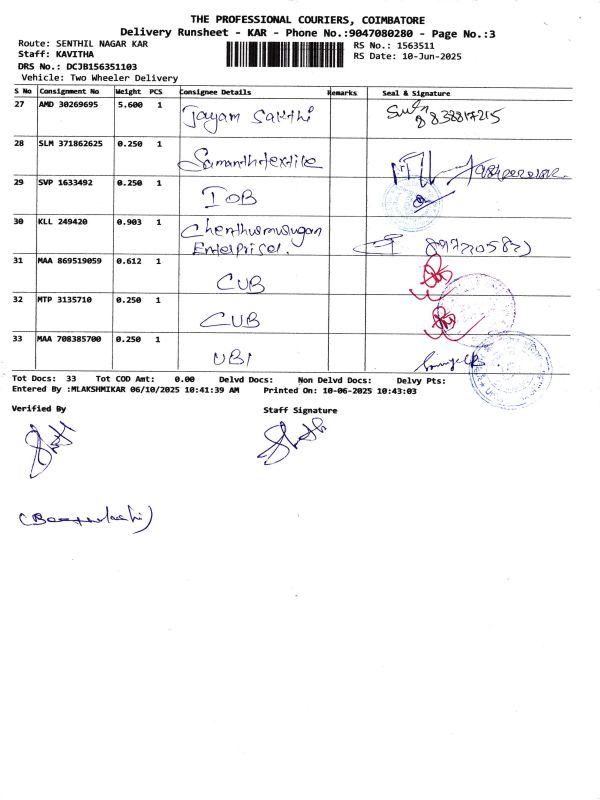 THE PROFESSIONAL COURIERS, COIMBATORE
Delivery Runsheet - KAR - Phone No.:9047080280 - Page No.:3
Route: SENTHIL NAGAR KAR
RS No.: 1563511
Staff: KAVITHA
RS Date: 10-Jun-2025
DRS No.: DCJB156351103
Vehicle: Two Wheeler Delivery
S No Consignment No Weight PCS Consignee Details Remarks Seal & Signature
27 AMD 30269695 5.600 1 Jayam Sakthi
28 SLM 371862625 0.250 1 Samanthitextile
29 SVP 1633492 0.250 1 IOB
30 KLL 249420 0.903 1 Chenthurmurugan
Enterprises.
31 MAA 869519059 0.612 1 CUB
32 MTP 3135710 0.250 1 CUB
33 MAA 708385700 0.250 1 UBI
Tot Docs: 33 Tot COD Amt: 0.00 Delvd Docs: Non Delvd Docs: Delvy Pts:
Entered By :MLAKSHMIKAR 06/10/2025 10:41:39 AM Printed On: 10-06-2025 10:43:03
Verified By
Staff Signature